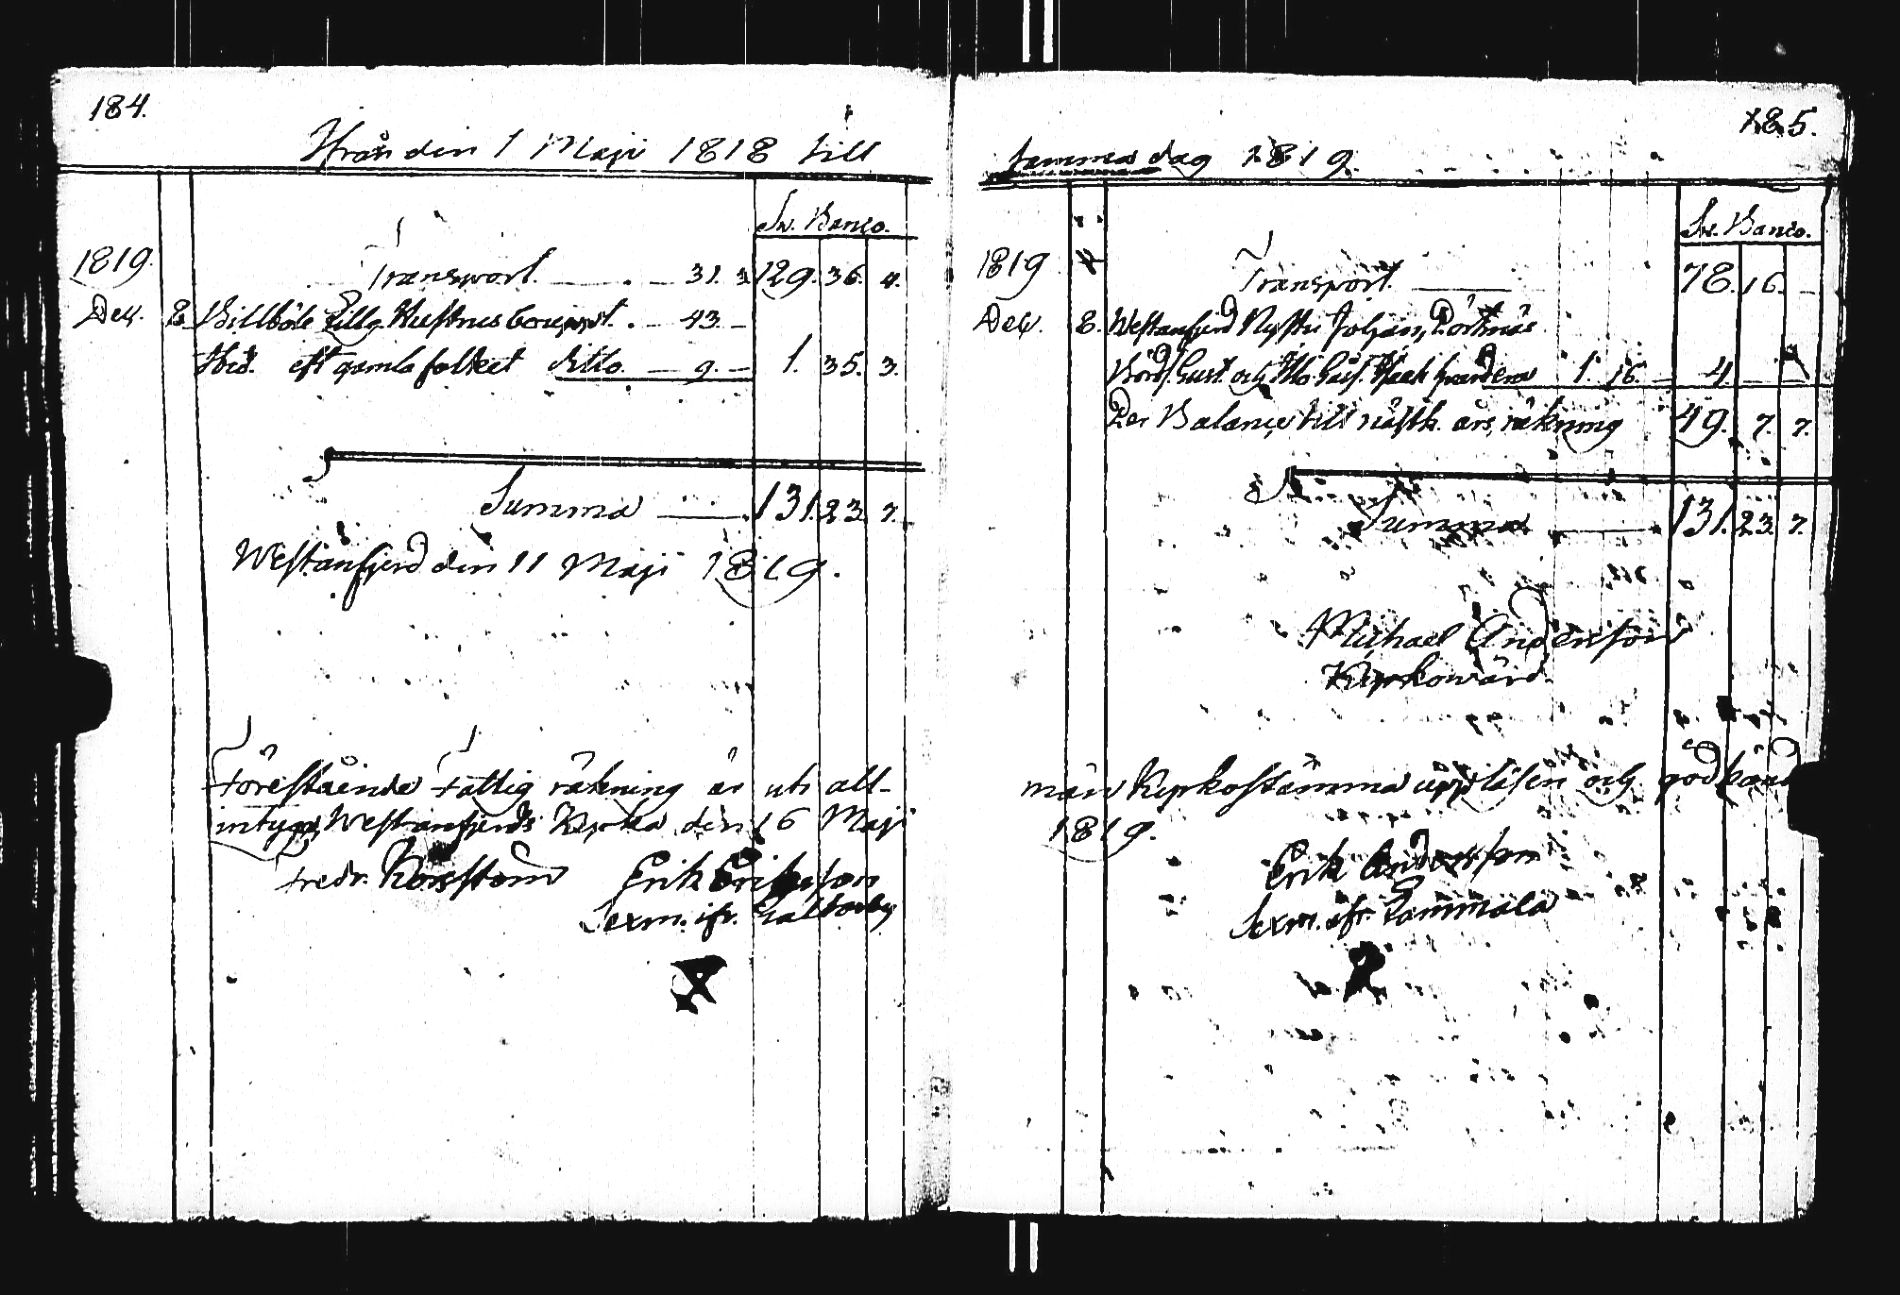 184.
Ifrån den 1 Maji 1818 till
Sw. Banco.
1819.
Transport 31. 3. 129. 36. 4.
Dec. 8. Billböle Hustrus 43.
Ibid. gamla folket ditto. 9. 1. 35. 3.
Summa 131. 23. 7.
Westanfjerd den 11 Maji 1819.
Föreståënde Fattig räkning är uti all-
intygar, Westanfjerds Kyrka den 16 Maji
Fredr. Erik Eriksson
Sexm. ifr. Galtarby
185.
samma dag 1819.
Sw. Banco.
1819
Transport 78. 16.
Dec. 8. Westanfjerd Johan,
Gust. och 1. 16. 4.
Per Balance till nästk. års räkning 49. 7. 7.
Summa 131. 23. 7.
Michael Andersson
Kyrkowärd.
män Kyrkostämma uppläsen och godkänd
1819.
Erik Andersson
Sexm. ifr. Lammala